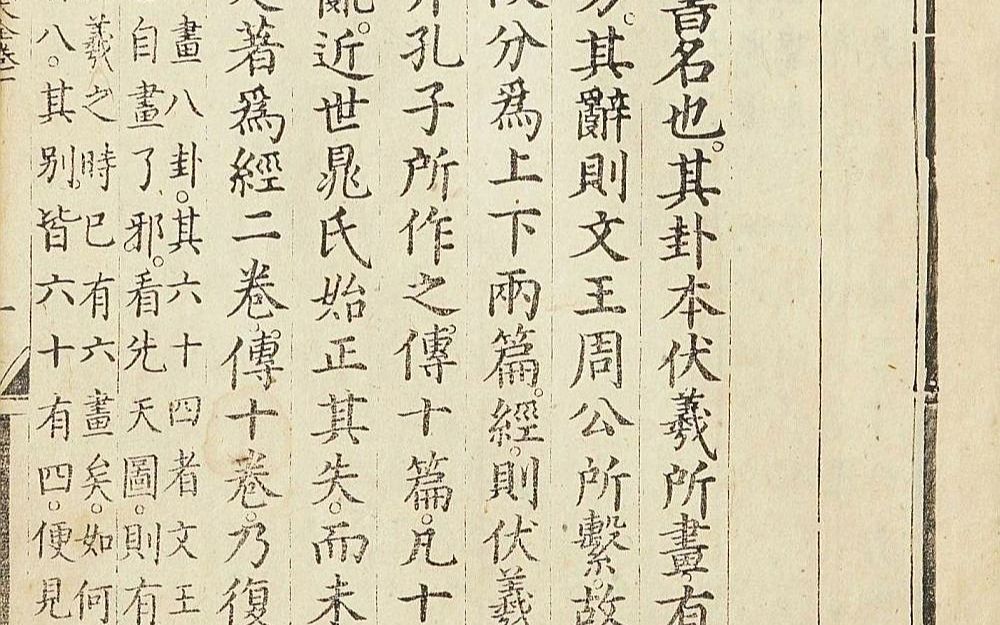 書名也。其卦本伏羲所畫有
其辭則文王周公所繫。故
分爲上下兩篇。經則伏羲
孔子所作之傳十篇。凡十
亂。近世晁氏始正其失。而未
著爲經二卷。傳十卷。乃復
畫八卦。其六十四者文王
自畫了邪。看先天圖。則有
羲之時已有六畫矣。如何
八。其別。皆六十有四。便見